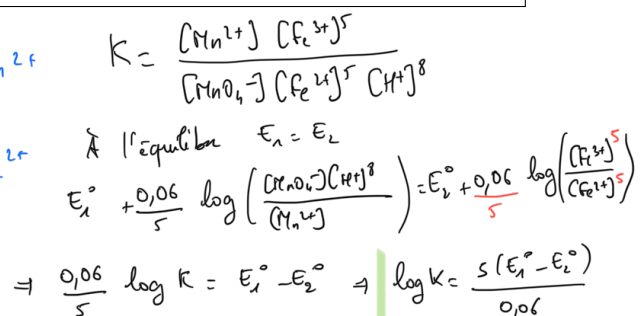 K = [Mn²⁺] [Fe³⁺]⁵ / [MnO₄⁻] [Fe²⁺]⁵ [H⁺]⁸
2+
À l'équilibre E₁ = E₂
2+
E₁° + 0,06/5 log ([MnO₄⁻][H⁺]⁸ / [Mn²⁺]) = E₂° + 0,06/5 log ([Fe³⁺]⁵ / [Fe²⁺]⁵)
⇒ 0,06/5 log K = E₁° - E₂° ⇒ log K = 5(E₁° - E₂°) / 0,06